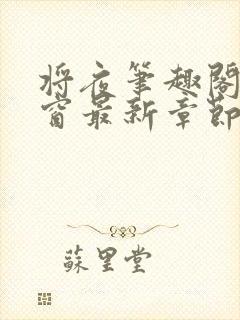 将夜笔趣阁
窗最新章节
苏里堂